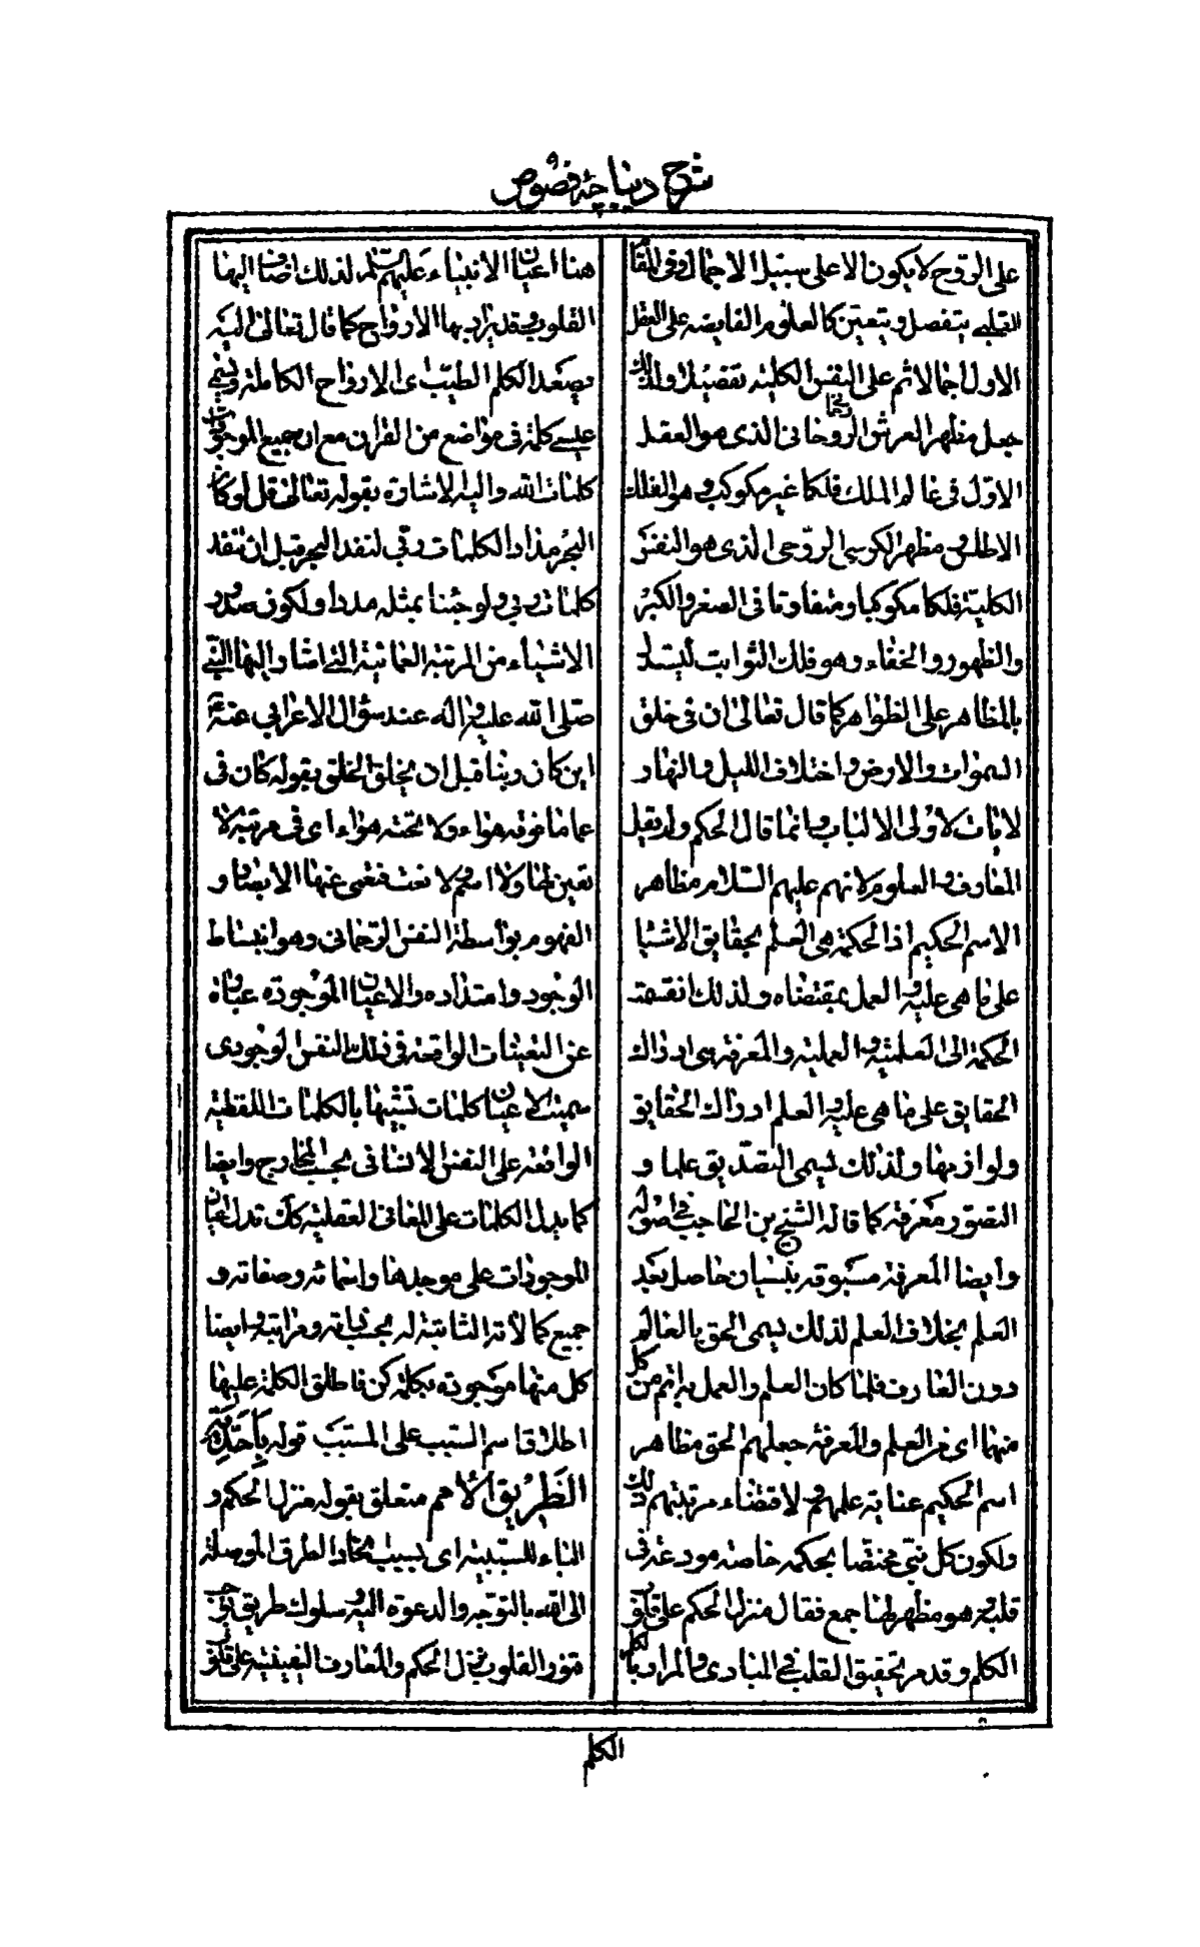 شرح ديباچه فصوص
على الروح لا يكون الا على سبيل الاجمال وفى المقام
القلبى يتفصل ويتعين كالعلوم الفايضه على العقل
الاول اجمالا ثم على النفس الكلية تفصيلا ولذلك
جعل مظهر العرش الروحانى الذى هو العقل
الاول فى عالم الملك فلكا غير مكوكب وهو الفلك
الاطلس ومظهر الكرسى الروحى الذى هو النفس
الكلية فلكا مكوكبا ومتفاوتا فى الصغر والكبر
والظهور والخفاء وهو فلك الثوابت ليستدل
بالمظاهر على الظواهر كما قال تعالى ان فى خلق
السموات والارض واختلاف الليل والنهار
لايات لاولى الالباب وانما قال الحكم ولم يقل
المعارف والعلوم لانهم عليهم السلام مظاهر
الاسم الحكيم اذ الحكمة هى العلم بحقايق الاشيا
على ما هى عليه والعمل بمقتضاه ولذلك انقسمت
الحكمة الى العلمية والعملية والمعرفة هى ادراك
الحقايق على ما هى عليه والعلم ادراك الحقايق
ولوازمها ولذلك يسمى التصديق علما و
التصور معرفة كما قاله الشيخ بن الحاجب فى اصوله
وايضا المعرفة مسبوقة بنسيان حاصل بعد
العلم بخلاف العلم لذلك يسمى الحق بالعالم
دون العارف فلما كان العلم والعمل به اتم من كل
منهما اى من العلم والمعرفة جعلهم الحق مظاهر
اسم الحكيم عناية عليهم ولاقتضاء مرتبتهم ذلك
ولكون كل نبى مختصا بحكمة خاصة مودعة فى
قلبه وهو مظهر لها جمع فقال منزل الحكم على قلوب
الكلم وقد مر تحقيق القلب فى المبادى والمراد بالكلم
هنا اعيان الانبياء عليهم السلام لذلك اضاف اليها
القلوب وقد يراد بها الارواح كما قال تعالى اليه
يصعد الكلم الطيب اى الارواح الكاملة ويسمى
عيسى كلمة فى مواضع من القران مع ان جميع الموجودات
كلمات الله واليه الاشارة بقوله تعالى قل لو كان
البحر مدادا لكلمات ربى لنفد البحر قبل ان تنفد
كلمات ربى ولو جئنا بمثله مددا ولكون صدور
الاشياء من المرتبة العمائية التى اشار اليها النبى
صلى الله عليه واله عند سؤال الاعرابى عنه
اين كان ربنا قبل ان يخلق الخلق بقوله كان فى
عما ما فوقه هواء ولا تحته هواء اى فى مرتبة لا
تعين لها ولا اسم ولا نعت فتعمى عنها الابصار و
الفهوم بواسطة النفس الرحمانى وهو انبساط
الوجود وامتداده والاعيان الموجودة عبارة
عن التعينات الواقعة فى ذلك النفس الوجودى
سميت الاعيان كلمات تشبيها بالكلمات اللفظية
الواقعة على النفس الانسانى بحسب المخارج وايضا
كما يدل الكلمات على المعانى العقلية كذلك تدل اعيان
الموجودات على موجدها واسمائه وصفاته و
جميع كمالاته الثابتة له بحسب ذاته ومراتبه وايضا
كل منها موجودة بكلمة كن فاطلق الكلمة عليها
اطلاق اسم السبب على المسبب قوله بأحدية
الطريق الأمم متعلق بقوله منزل الحكم و
الباء للسببية اى بسبب اتحاد الطرق الموصلة
الى الله بالتوجه والدعوة اليه وسلوك طريق يوجب
تنور القلوب بتنزل الحكم والمعارف اليقينية على قلوب
الكلم